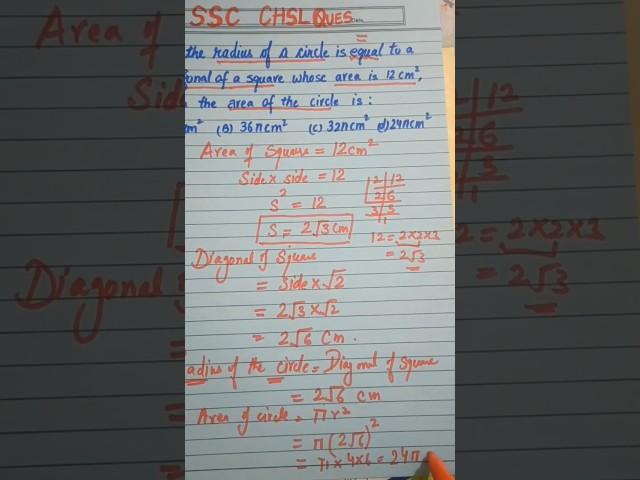 SSC CHSL QUES
the radius of a circle is equal to a
onal of a square whose area is 12 cm²,
the area of the circle is :
cm² (B) 36πcm² (C) 32πcm² (d) 24πcm²
Area of Square = 12cm²
Side x side = 12
S² = 12
S = 2√3 cm
2 | 12
2 | 6
3 | 3
1
12 = 2x2x3
= 2√3
Diagonal of Square
= Side x √2
= 2√3 x √2
= 2√6 Cm.
adius of the circle = Diagonal of Square
= 2√6 cm
Area of circle = πr²
= π(2√6)²
= π x 4x6 = 24π